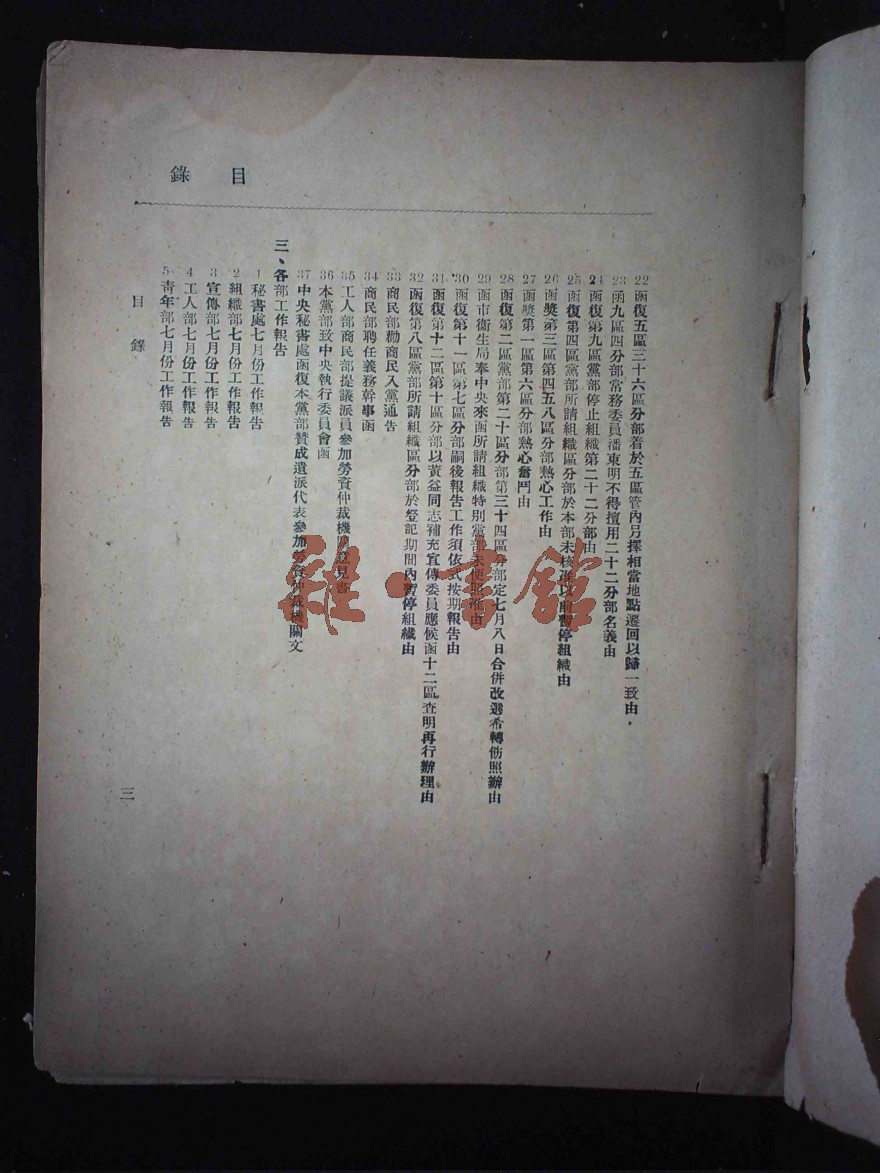 目錄
22 函復五區三十六區分部着於五區管內另擇相當地點遷回以歸一致由．
23 函九區四分部常務委員潘東明不得擅用二十二分部名義由
24 函復第九區黨部停止組織第二十二分部由
25 函復第四區黨部所請組織區分部於本部未核准以前暫停組織由
26 函獎第三區第四五八區分部熱心工作由
27 函獎第一區第六區分部熱心奮鬥由
28 函復第二區黨部第二十區分部第三十四區分部定七月八日合併改選希轉飭照辦由
29 函市衛生局奉中央來函所請組織特別黨部未便照准由
30 函復第十一區第七區分部嗣後報告工作須依式按期報告由
31 函復第十二區第十區分部以黃益同志補充宣傳委員應候函十二區查明再行辦理由
32 函復第八區黨部所請組織區分部於登記期間內暫停組織由
33 商民部勸商民入黨通告
34 商民部聘任義務幹事函
35 工人部商民部提議派員參加勞資仲裁機關意見書
36 本黨部致中央執行委員會函
37 中央秘書處函復本黨部贊成遣派代表參加勞資仲裁機關文
三、各部工作報告
1 秘書處七月份工作報告
2 組織部七月份工作報告
3 宣傳部七月份工作報告
4 工人部七月份工作報告
5 青年部七月份工作報告
目錄
三